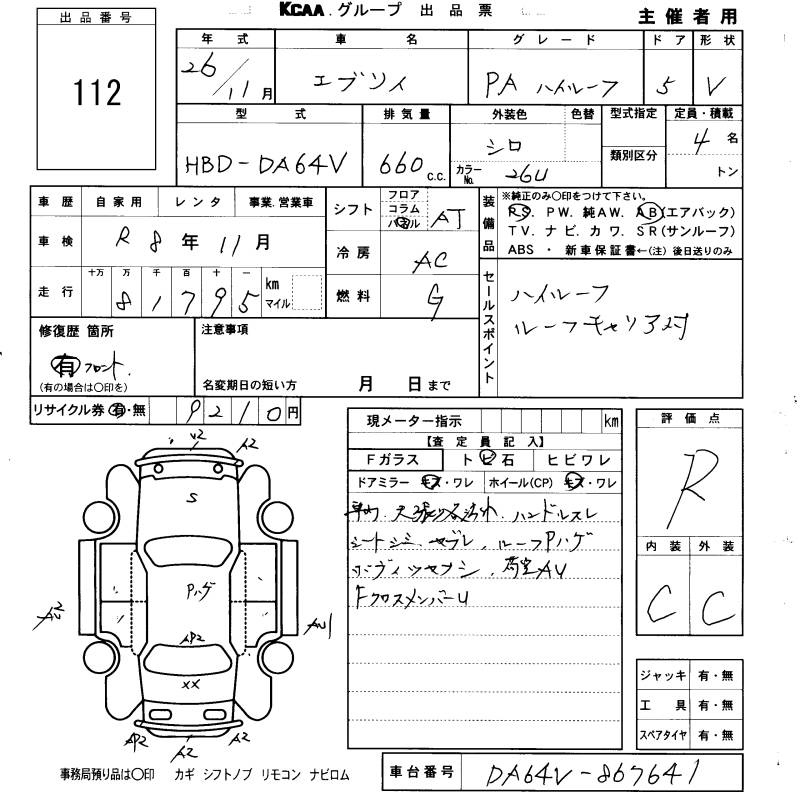 KCAA.グループ 出品票
主催者用
出品番号
112
年式 車名 グレード ドア 形状
26/11月 エブリイ PA ハイルーフ 5 V
型式 排気量 外装色 色替 型式指定 定員・積載
HBD-DA64V 660 c.c. シロ 4名
カラーNo. 26U 類別区分 トン
車歴 自家用 レンタ 事業.営業車
車検 R 8年 11月
シフト フロア コラム パネル AT
冷房 AC
走行 十万 万 千 百 十 一 km マイル
8 1 7 9 5
燃料 G
装備品 ※純正のみ〇印をつけて下さい。
PS. PW. 純AW. AB(エアバック)
TV. ナビ. カワ. SR(サンルーフ)
ABS ・ 新車保証書←(注) 後日送りのみ
セールスポイント
ハイルーフ
ルーフキャリア付
修復歴 箇所
有 フロント.
(有の場合は〇印を)
注意事項
名変期日の短い方 月 日まで
リサイクル券 有・無 9210円
現メーター指示 km
【査定員記入】
Fガラス トビ石 ヒビワレ
ドアミラー キズ・ワレ ホイール(CP) キズ・ワレ
ハンドルスレ
ルーフPハゲ
荷室AU
FクロスメンバーU
評価点
R
内装 外装
C C
ジャッキ 有・無
工具 有・無
スペアタイヤ 有・無
A2
S
Pハゲ
AU1
AP2
XX
AP2
A2
A2
事務局預り品は〇印 カギ シフトノブ リモコン ナビロム
車台番号 DA64V-867641